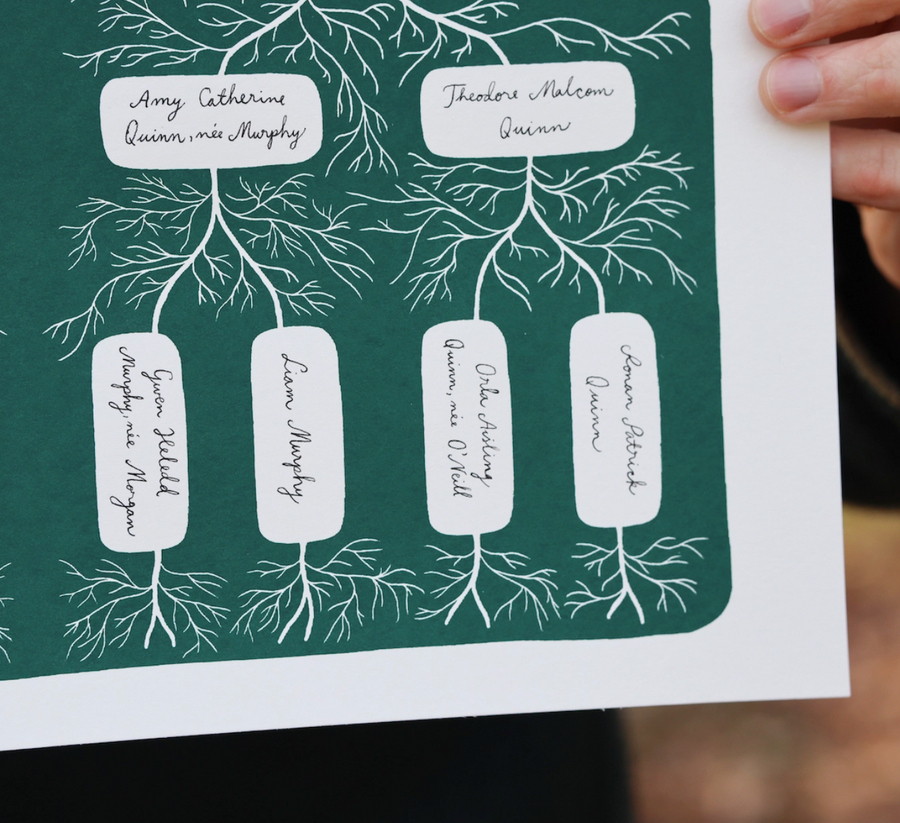 Amy Catherine
Quinn, née Murphy
Theodore Malcom
Quinn
Gwen Heledd
Murphy, née Morgan
Liam Murphy
Orla Aisling
Quinn, née O'Neill
Ronan Patrick
Quinn